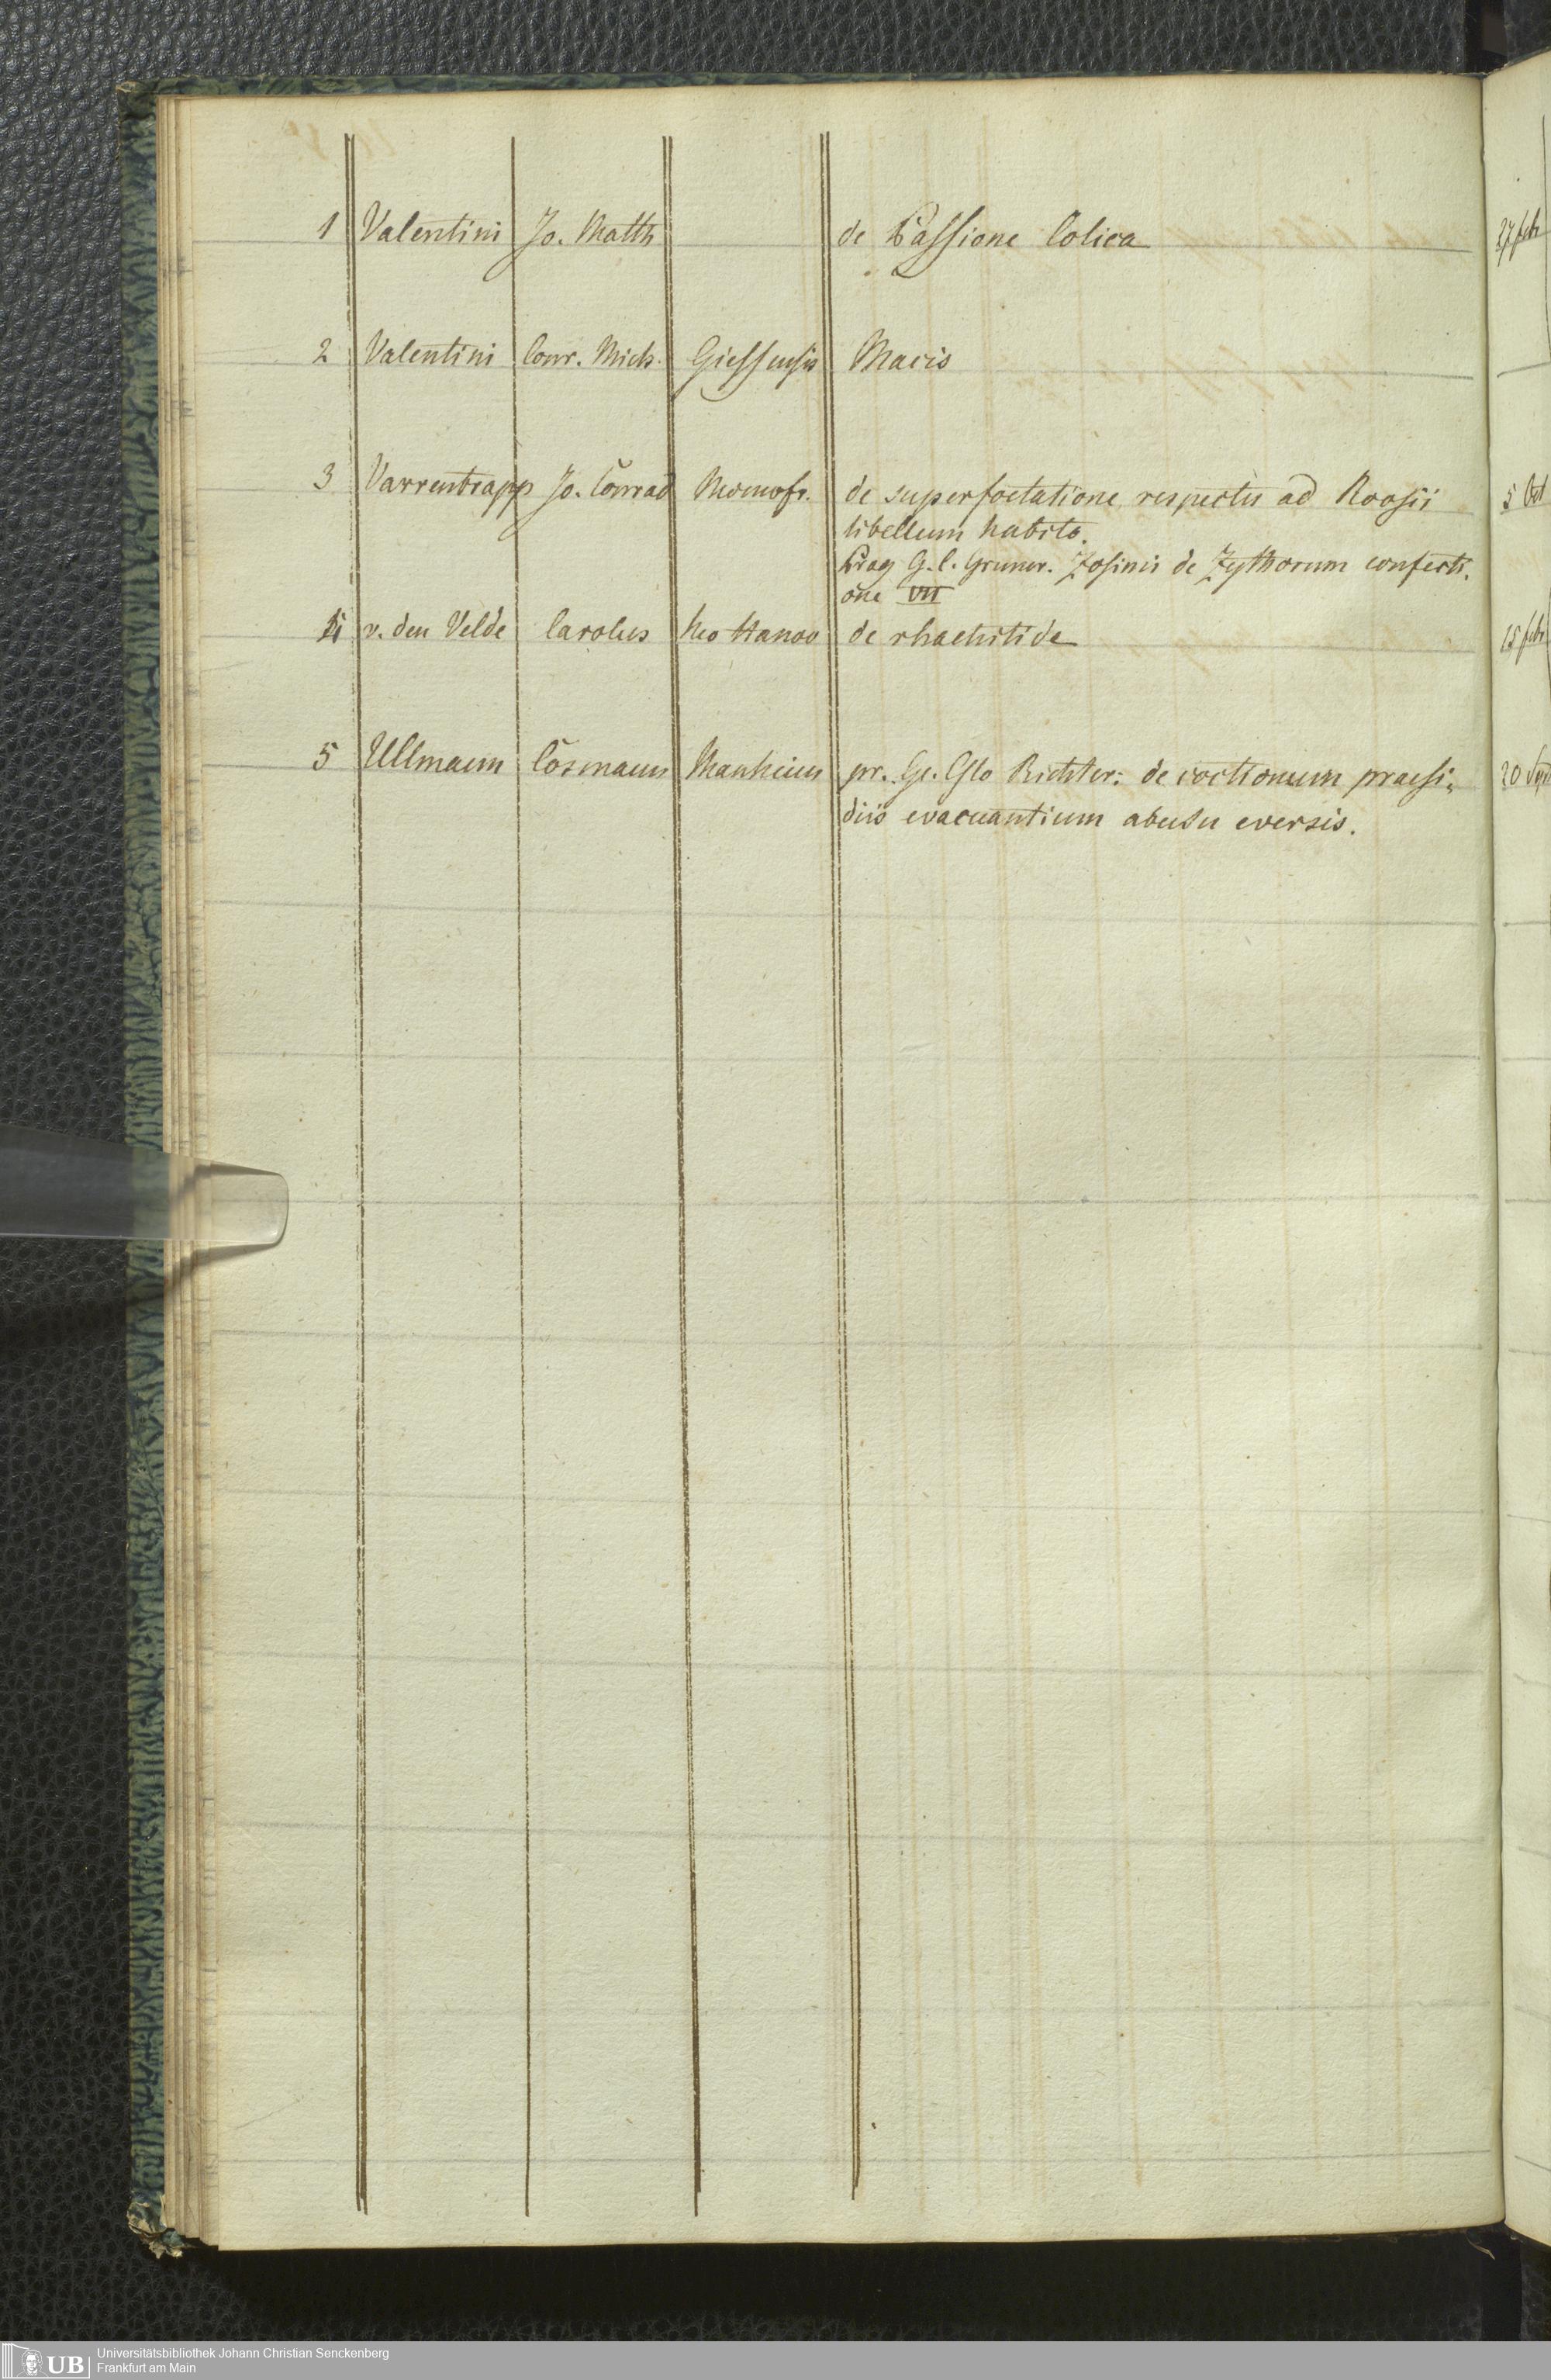 1 Valentini Jo. Matth de Passione Colica 27 feb
2 Valentini Conr. Mich. Giessensis Macis
3 Varrentrapp Jo. Conrad Moenofr. de superfoetatione respectu ad Roosii 5 Oct
libellum habito.
Prag G. C. Gruner. Zosimi de Zythorum confecti,
one VII
4 v. den Velde Carolus Neo Hanov de rhachitide 15 febr
5 Ullmann Cosmann Manheim pr. Ge. Glo Richter: de coctionum praesi, 20 Sept
diis evacuantium abusu eversis.
UB Universitätsbibliothek Johann Christian Senckenberg
Frankfurt am Main